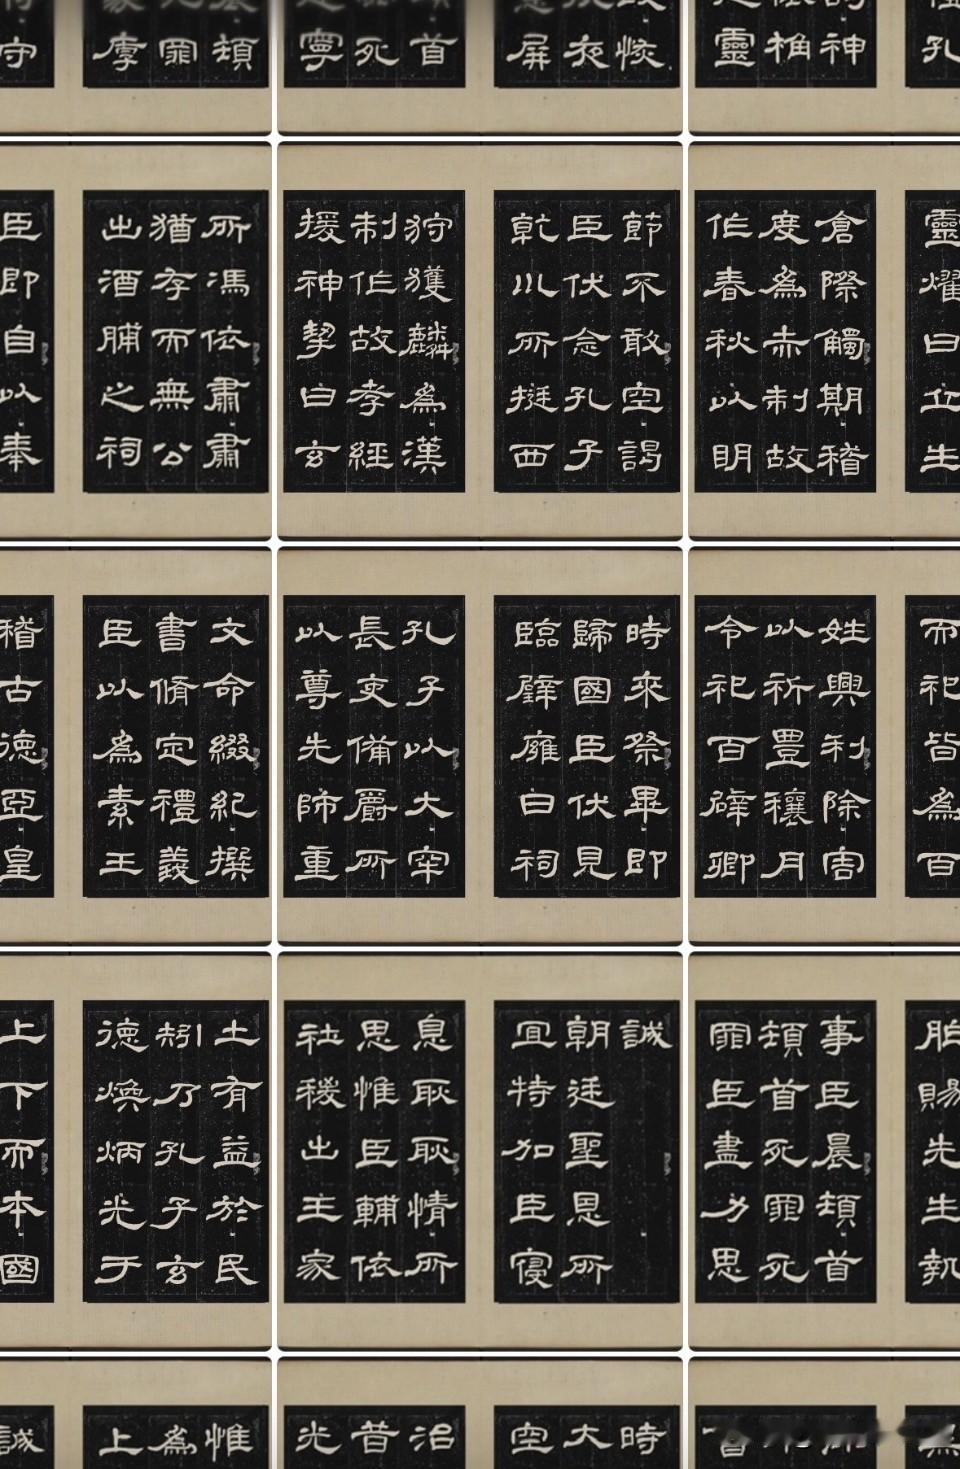 頓
罪
守
恢
夜
屏
首
死
寧
孔
神
桷
靈
所馮依肅肅
猶存而無公
出酒脯之祠
臣即自以奉
節不敢空謁
臣伏念孔子
乾川所挺西
狩獲麟為漢
制作故孝經
援神挈曰玄
靈燿曰丘生
倉際觸期稽
度為赤制故
作春秋以明
文命綴紀撰
書脩定禮義
臣以為素王
稽古德亞皇
時來祭畢即
歸國臣伏見
臨璧雍日祠
孔子以大牢
長吏備爵所
以尊先師重
而祀皆為百
姓興利除害
以祈豐穰月
令祀百辟卿
土有益於民
矧乃孔子玄
德煥炳光于
上下而本國
誠
朝廷聖恩所
宜特加臣寑
息耿耿情所
思惟臣輔依
社稷出王家
胙賜先生執
事臣晨頓首
頓首死罪死
罪臣盡力思
惟
為
上
誠
時
大
空
治
昔
光